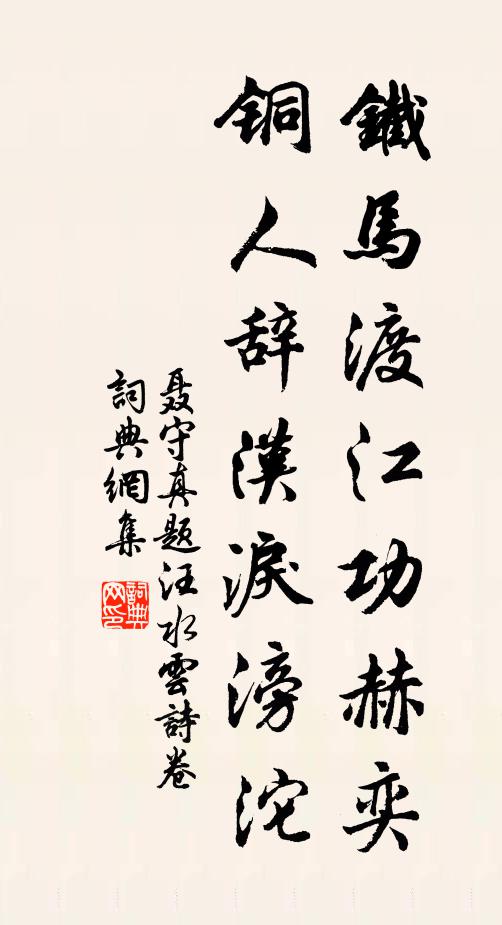 鐵馬渡江功赫奕
銅人辞漢淚滂沱
聂守真题汪水雲詩卷
詞典網集
詞典网印